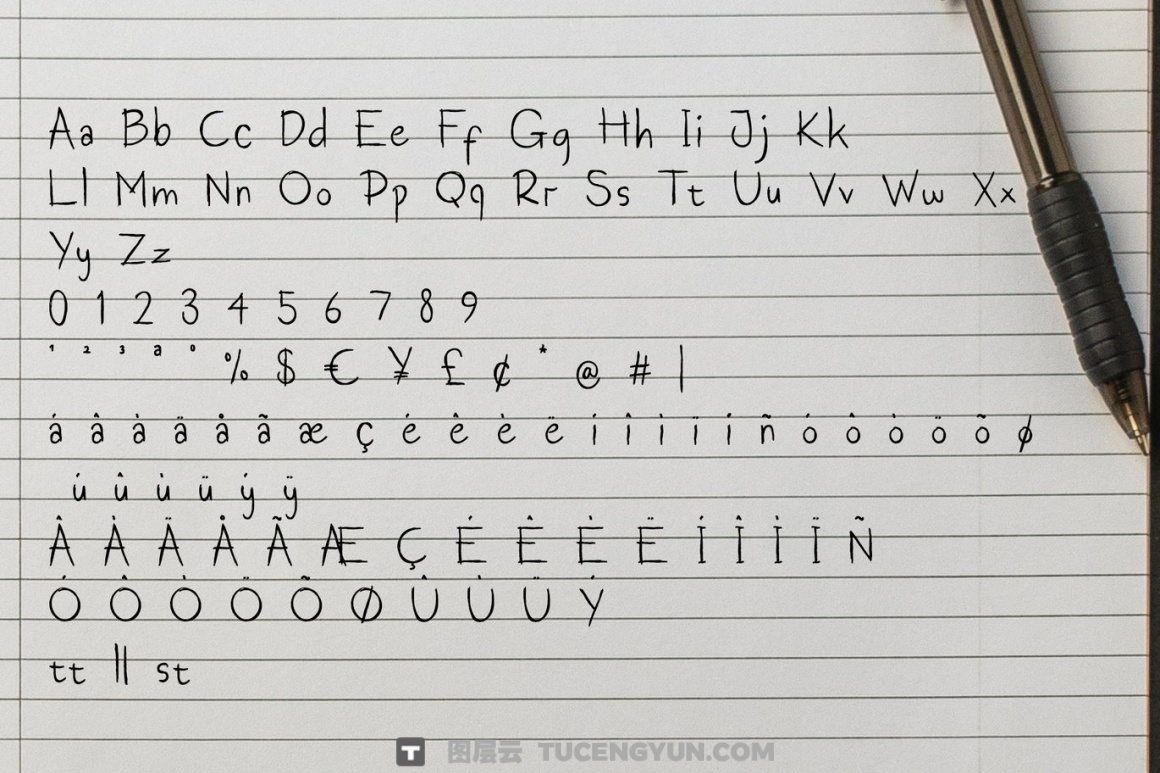 Aa Bb Cc Dd Ee Ff Gg Hh Ii Jj Kk
Ll Mm Nn Oo Pp Qq Rr Ss Tt Uu Vv Ww Xx
Yy Zz
0 1 2 3 4 5 6 7 8 9
¹ ² ³ ª º % $ € ¥ £ ¢ * @ # |
á â à ä å ã æ ç é ê è ë í î ì ï í ñ ó ô ò ö õ ø
ú û ù ü ý ÿ
Â À Ä Å Ã Æ Ç É Ê È Ë Í Î Ì Ï Ñ
Ó Ô Ò Ö Õ Ø Û Ù Ü Ý
tt ll st
T 图层云 TUCENGYUN.COM